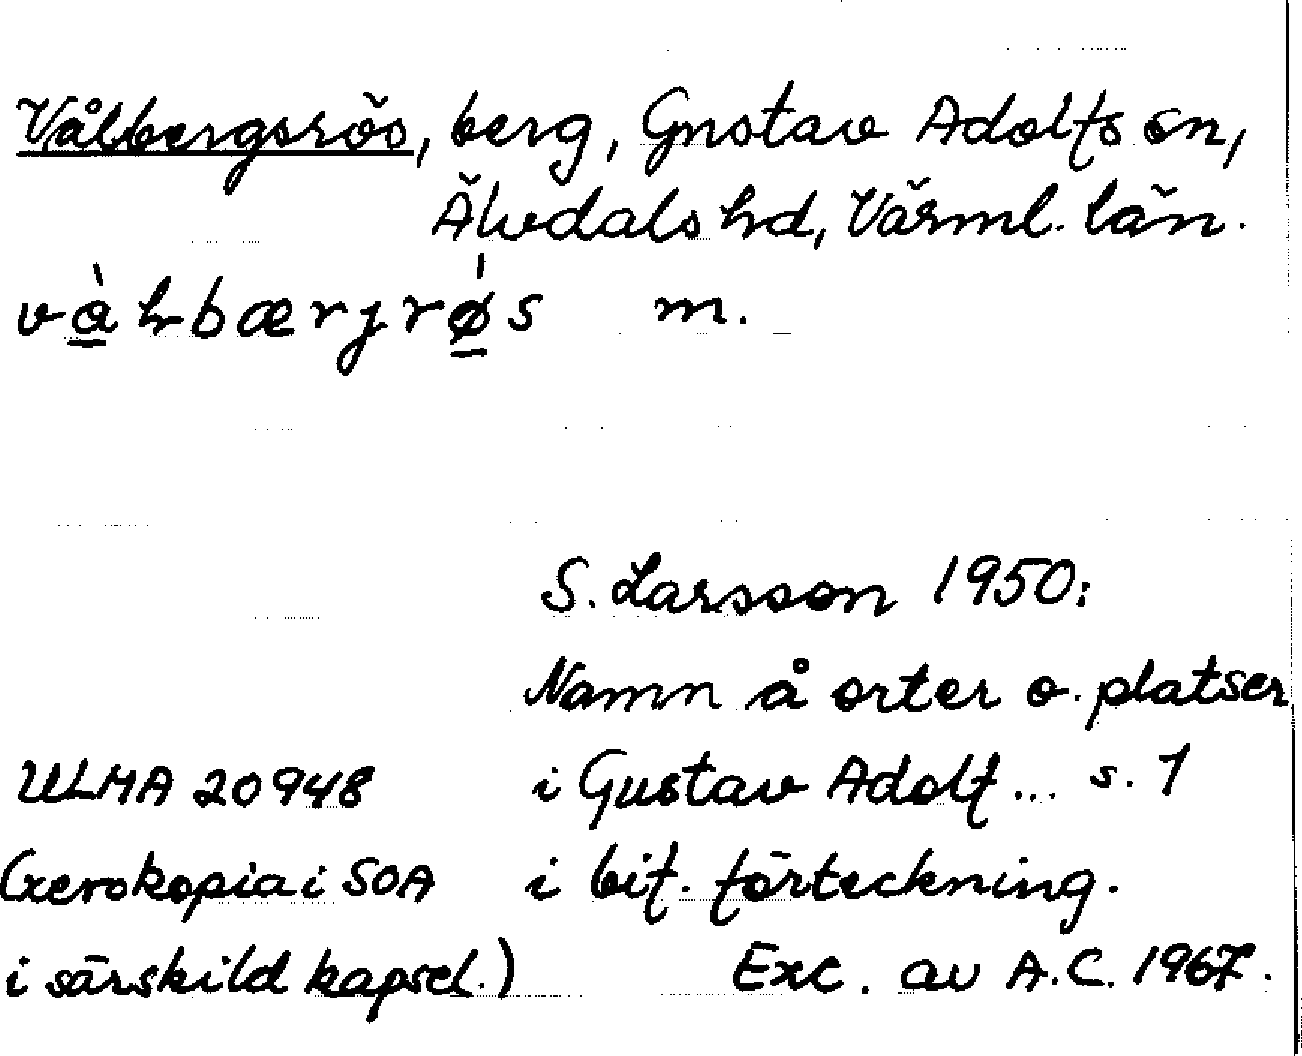 Vålbergsrös, berg, Gustav Adolfs sn,
Älvdals hd, Värml. län.
v<u>à</u>ɫbærjr<u>ǿ</u>s m.
S. Larsson 1950:
Namn å orter o. platser
ULMA 20948 i Gustav Adolf... s. 1
(Xerokopia i SOA i bif. förteckning.
i särskild kapsel.) Exc. av A.C. 1967.